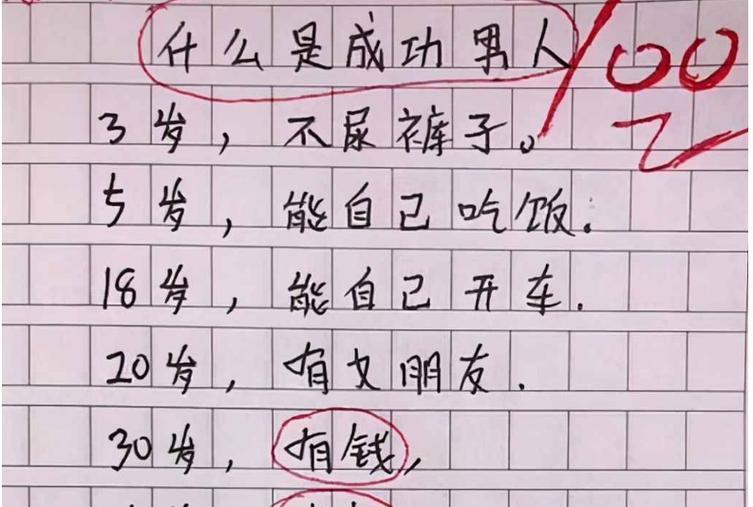 什么是成功男人
100
3岁，不尿裤子。
5岁，能自己吃饭.
18岁，能自己开车.
20岁，有女朋友.
30岁，有钱，